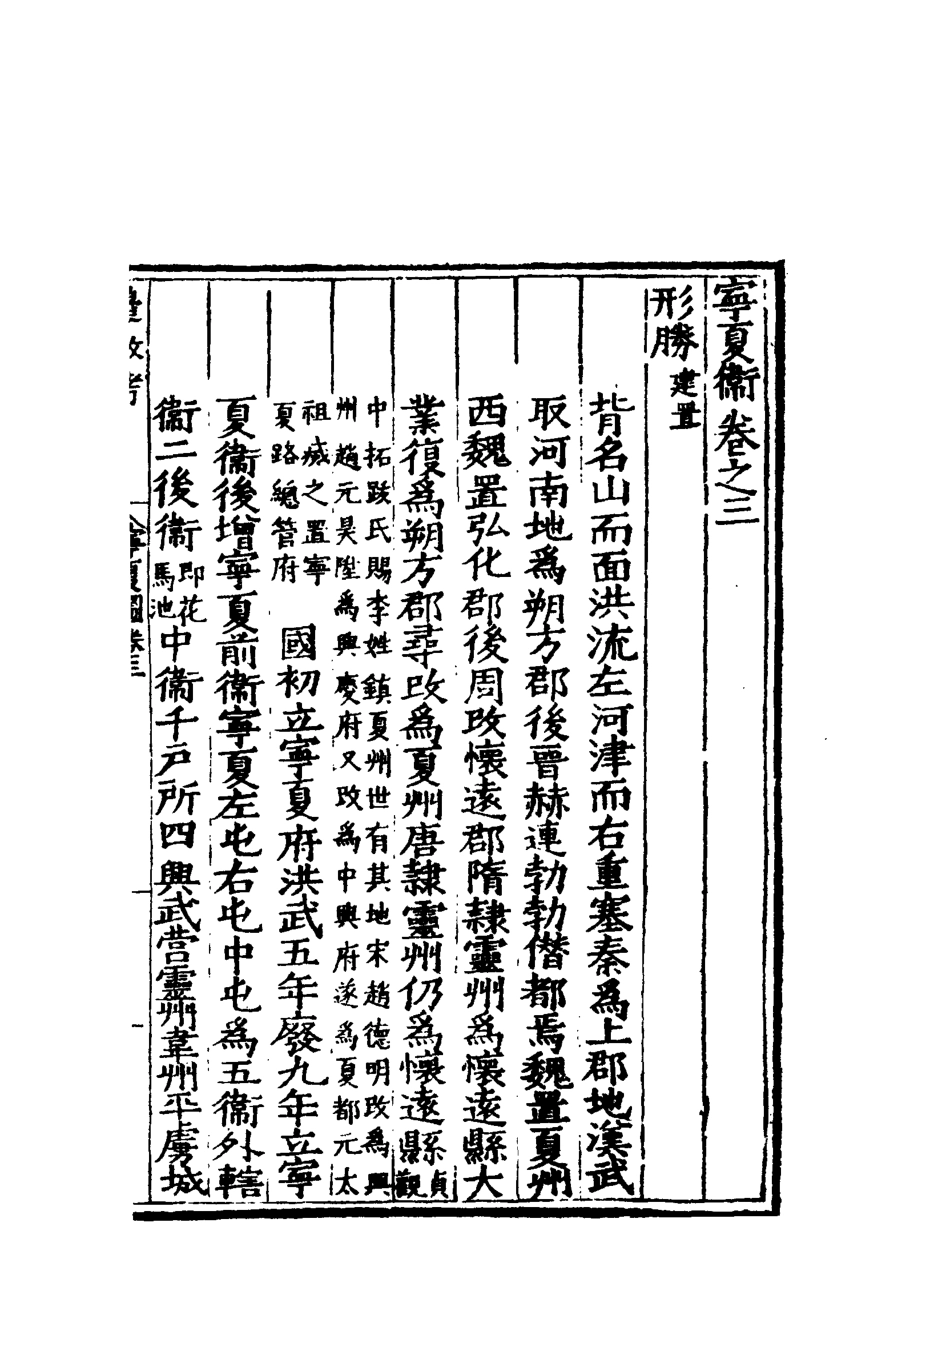 寧夏衞卷之三
形勝 建置
背名山而面洪流左河津而右重塞秦爲上郡地漢武
取河南地爲朔方郡後晉赫連勃勃僭都焉魏置夏州
西魏置弘化郡後周改懷遠郡隋隸靈州爲懷遠縣大
業復爲朔方郡尋改爲夏州唐隸靈州仍爲懷遠縣貞觀
中拓跋氏賜李姓鎮夏州世有其地宋趙德明改爲興
州趙元昊陞爲興慶府又改爲中興府遂爲夏都元太
祖滅之置寧
夏路總管府
國初立寧夏府洪武五年廢九年立寧
夏衞後增寧夏前衞寧夏左屯右屯中屯爲五衞外轄
衞二後衞即花馬池中衞千戶所四興武營靈州韋州平虜城
寧夏圖卷三